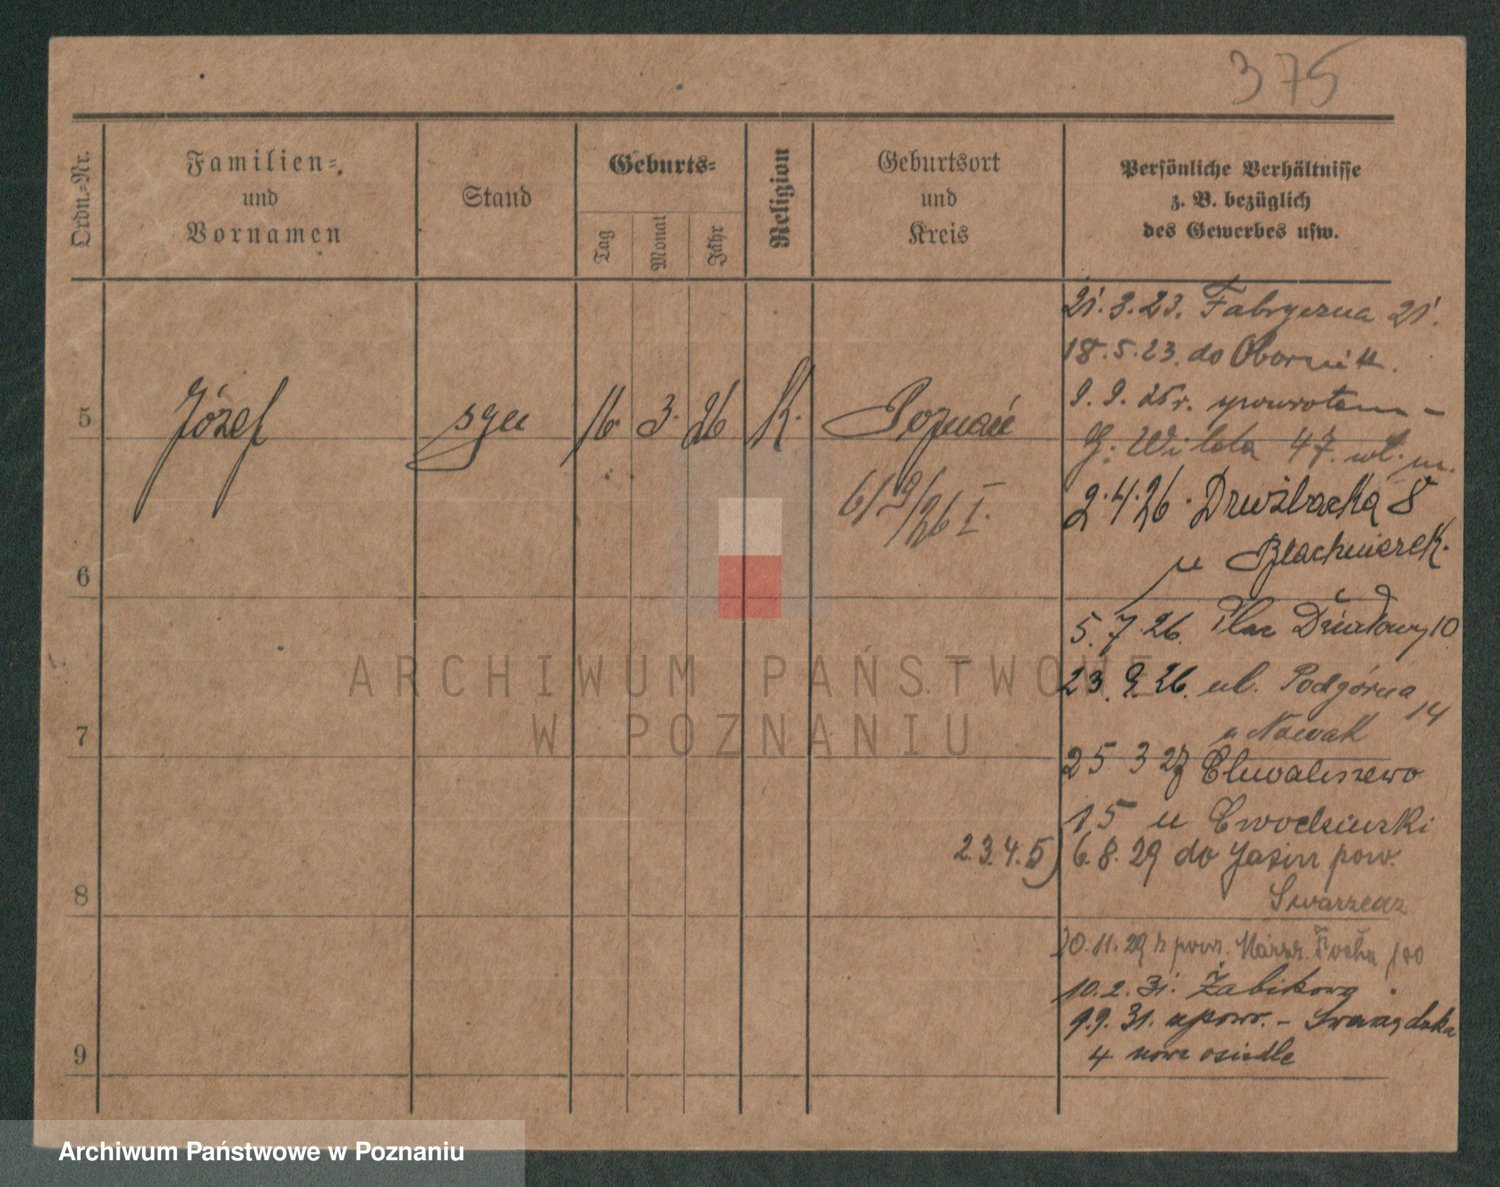 375
Ordn.-Nr.
Familien-
und
Vornamen
Stand
Geburts-
Tag
Monat
Jahr
Religion
Geburtsort
und
Kreis
Persönliche Verhältnisse
z. B. bezüglich
des Gewerbes usw.
5
Józef
syn
16
3.
26
K.
Poznań
6/9/26 I.
6
7
8
9
21.3.23. Fabryczna 21.
18.5.23. do Obornik.
9.9.25r. spowrotem -
G. Wilda 47. wł. m.
2.4.26. Drużbacka 8
u Błachnierek.
5.7.26. Plac Działowy 10
23.9.26. ul. Podgórna
14
u Nowak
25 3 27 Chwaliszewo
15 u
2.3.4.5) 6.8.29 do Jasin pow.
Swarzędz
20.11.29 z pow. Marsz. Focha 100
10.2.31. Żabikowo
9.9.31. spowr. -
4 nowe osiedle
ARCHIWUM PAŃSTWOWE
W POZNANIU
Archiwum Państwowe w Poznaniu